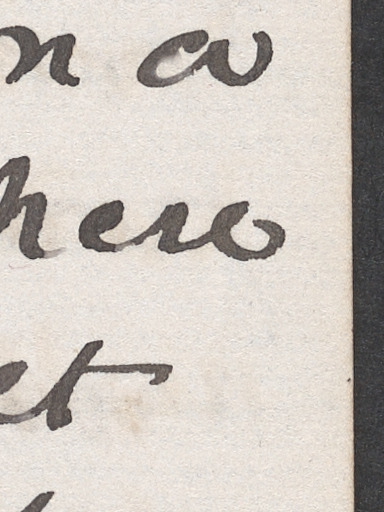 n a
here
et